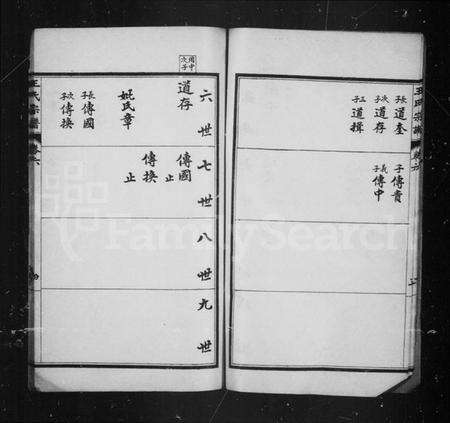 王氏宗譜
長子道奎
次子道存
三子道揖
子傳貴
義子傳中
六世
七世
八世
九世
周中次子
道存
妣氏章
長子傳國
次子傳換
傳國
止
傳換
止
王氏宗譜
FamilySearch